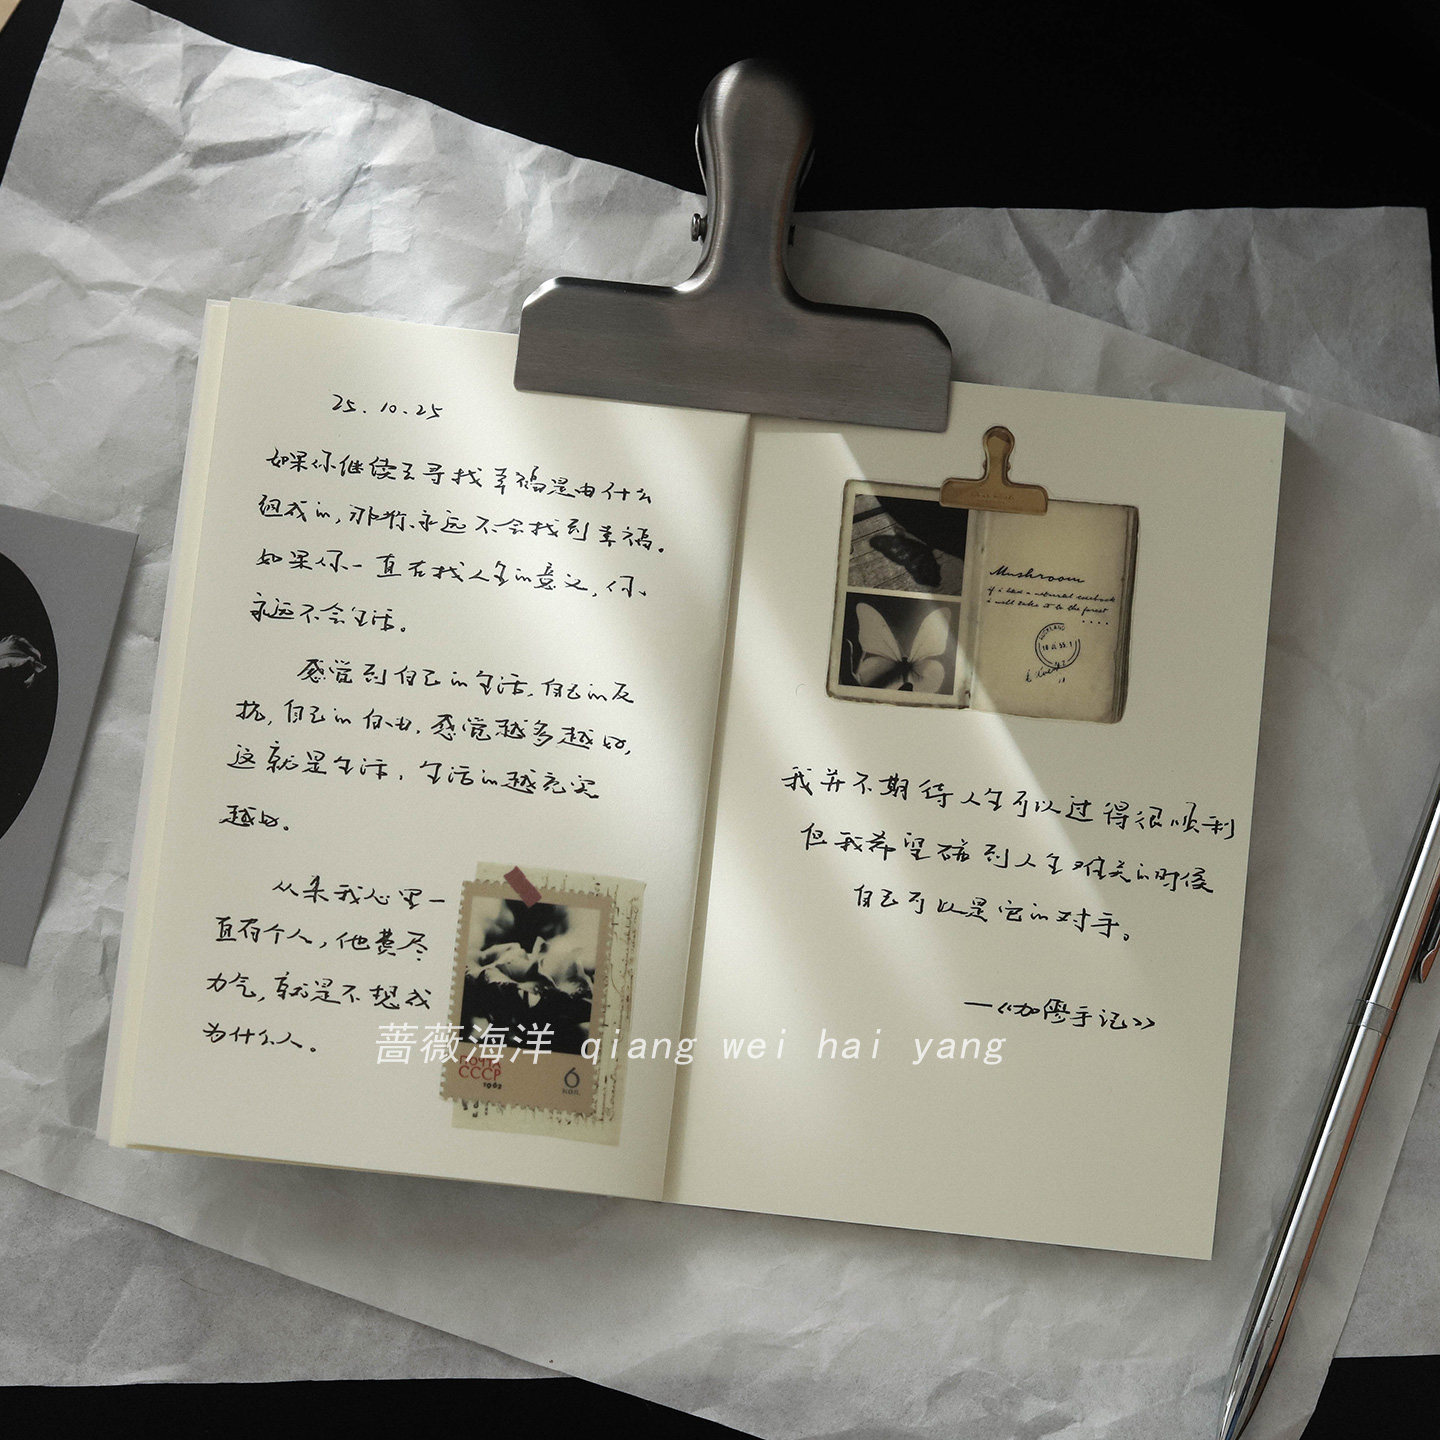 25.10.25
如果你继续去寻找幸福是由什么
组成的，那你永远不会找到幸福。
如果你一直在找人生的意义，你
永远不会生活。
感觉到自己的生活，自己的反
抗，自己的自由，感觉越多越好，
这就是生活，生活的越充实
越好。
从来我心里一
直有个人，他费尽
力气，就是不想成
为什么人。
ПОЧТА
СССР
1962
6
коп.
Mushroom
if i had a natural
i will take it to the forest
我并不期待人生可以过得很顺利
但我希望碰到人生难关的时候
自己可以是它的对手。
—《加缪手记》
蔷薇海洋 qiang wei hai yang